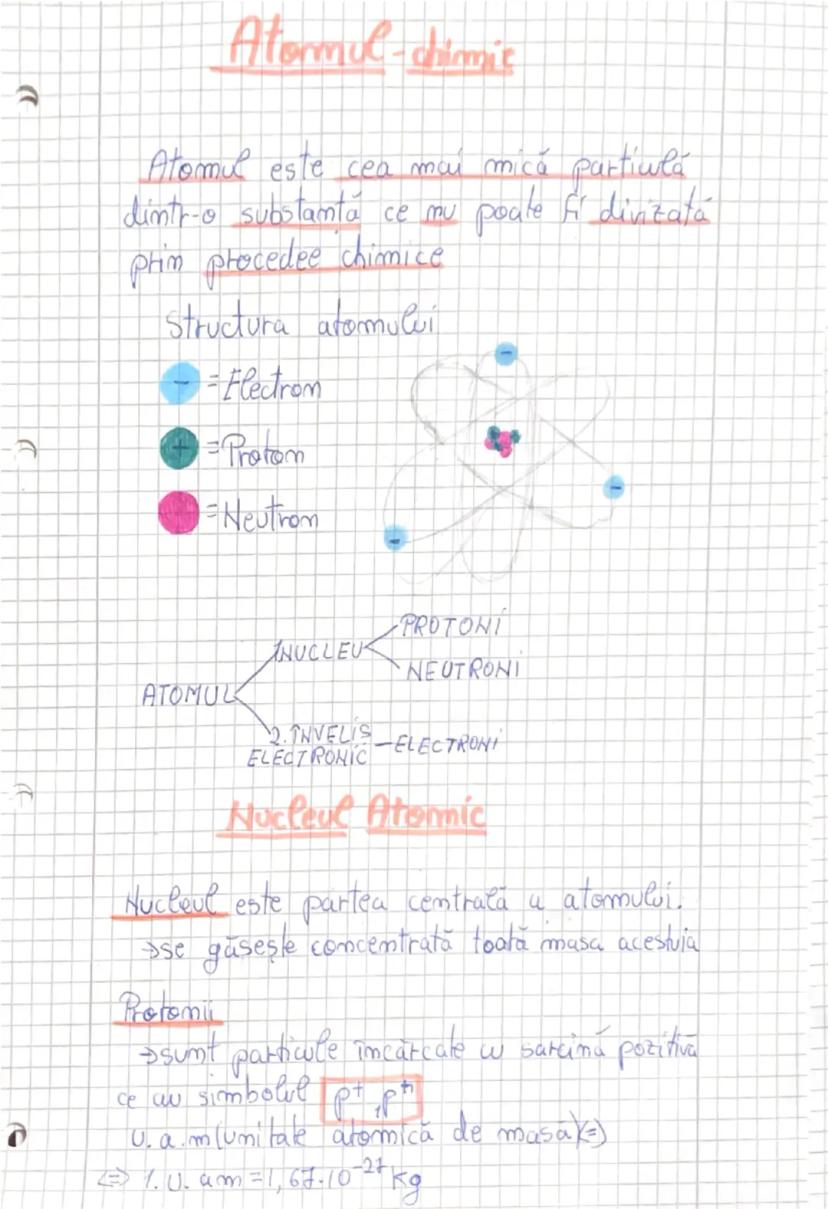 Atomul-chimic
Atomul este cea mai mică particulă
dintr-o substantă ce nu poate fi divizată
prin procedee chimice
Structura atomului
- = Electron
+ = Proton
= Neutron
- 
-
-
PROTONI
1NUCLEU
NEUTRONI
ATOMUL
2.ÎNVELIS - ELECTRONI
ELECTRONIC
Nucleul Atomic
Nucleul este partea centrală a atomului.
→se găsește concentrată toată masa acestuia
Protonii
→sunt particule încărcate cu sarcină pozitivă
ce au simbolul p⁺, p⁺¹
U.a.m(unitate atomică de masă)<=>
<=> 1.U.am=1,67.10⁻²⁷kg